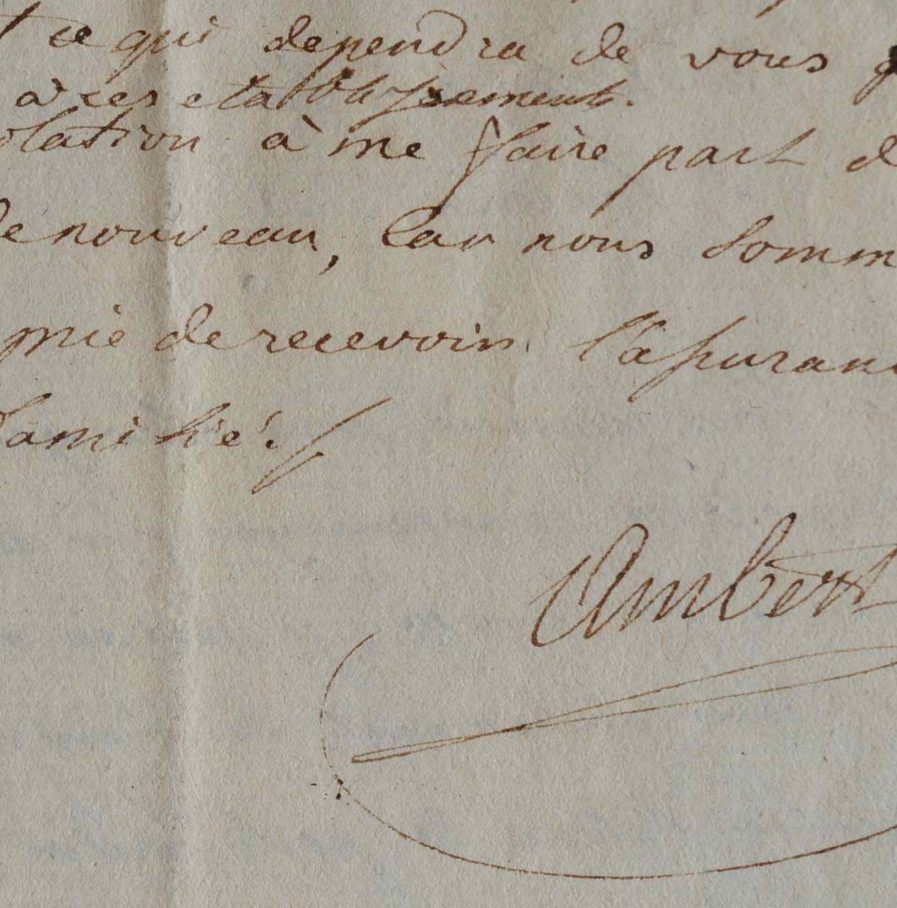 ce qui dependra de vous
à ces etablissements.
olation à me faire part d
de nouveau, Car nous somm
mie de recevoir l'assuranc
l'amitié.
Ambert